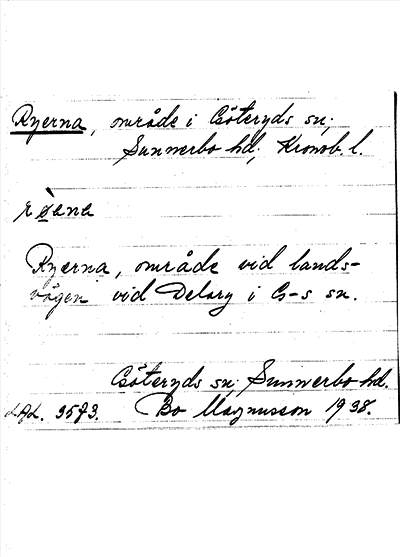 Ryerna, område i Göteryds sn;
Sunnerbo hd, Kronob. l.
Ryerna, område vid lands-
vägen vid Delary i G-s sn.
Göteryds sn; Sunnerbo hd.
3573. Bo Magnusson 1938.